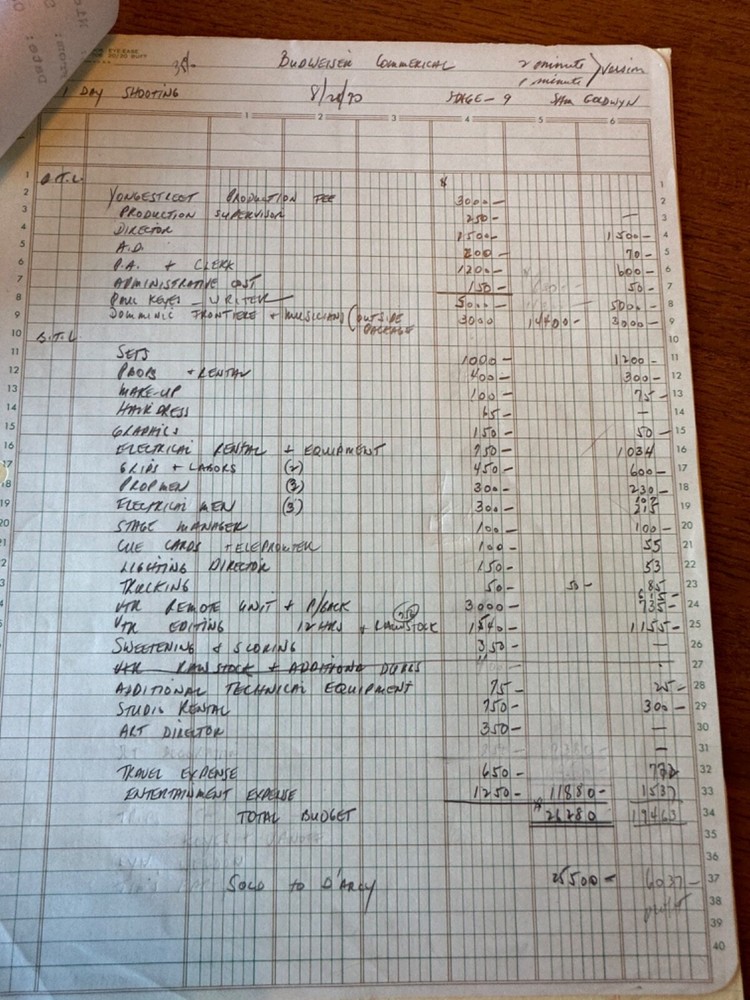 EYE-EASE
20/20 BUFF
35/-
BUDWEISER COMMERICAL
2 minute
1 minute
version
1 DAY SHOOTING 8/20/70 STAGE - 9 SAM GOLDWYN
1 2 3 4 5 6
1 A.T.L. $ 1
2 YONGESTREET PRODUCTION FEE 3000 - 2
3 PRODUCTION SUPERVISOR 250 - — 3
4 DIRECTOR 1500 - 1500 - 4
5 A.D. 200 - 70 - 5
6 P.A. + CLERK 1200 - 600 - 6
7 ADMINISTRATIVE COST 150 - 50 - 7
8 PAUL KEYES - WRITER 5000 - 5000 - 8
9 DOMMINIC FRONTIERE + MUSICIANS (OUTSIDE PACKAGE 3000 14400 - 3000 - 9
10 B.T.L. 10
11 SETS 1000 - 1200 - 11
12 PROPS + RENTAL 400 - 300 - 12
13 MAKE-UP 100 - 75 - 13
14 HAIR DRESS 65 - — 14
15 GRAPHICS 150 - 50 - 15
16 ELECTRICAL RENTAL + EQUIPMENT 750 - 1034 16
17 GRIPS + LABORS (2) 450 - 600 - 17
18 PROPMEN (2) 300 - 230 - 18
19 ELECTRICAL MEN (3) 300 - 215 19
20 STAGE MANAGER 100 - 100 - 20
21 CUE CARDS + TELEPROMTER 100 - 55 21
22 LIGHTING DIRECTOR 150 - 53 22
23 TRUCKING 50 - 50 - 85 23
24 VTR REMOTE UNIT + P/BACK 3000 - 735 - 24
25 VTR EDITING 12 HRS + RAWSTOCK 1540 - 1155 - 25
26 SWEETENING & SCORING 350 - — 26
27 VTR RAW STOCK + ADDITIONAL DUBS 27
28 ADDITIONAL TECHNICAL EQUIPMENT 75 - 25 - 28
29 STUDIO RENTAL 750 - 300 - 29
30 ART DIRECTOR 350 - — 30
31 — 31
32 TRAVEL EXPENSE 650 - 772 32
33 ENTERTAINMENT EXPENSE 1250 - 11880 - 1537 33
34 TOTAL BUDGET $ 26280 19463 34
35 35
36 36
37 SOLD to D'ARCY 25500 - 6037 - 37
38 profit 38
39 39
40 40